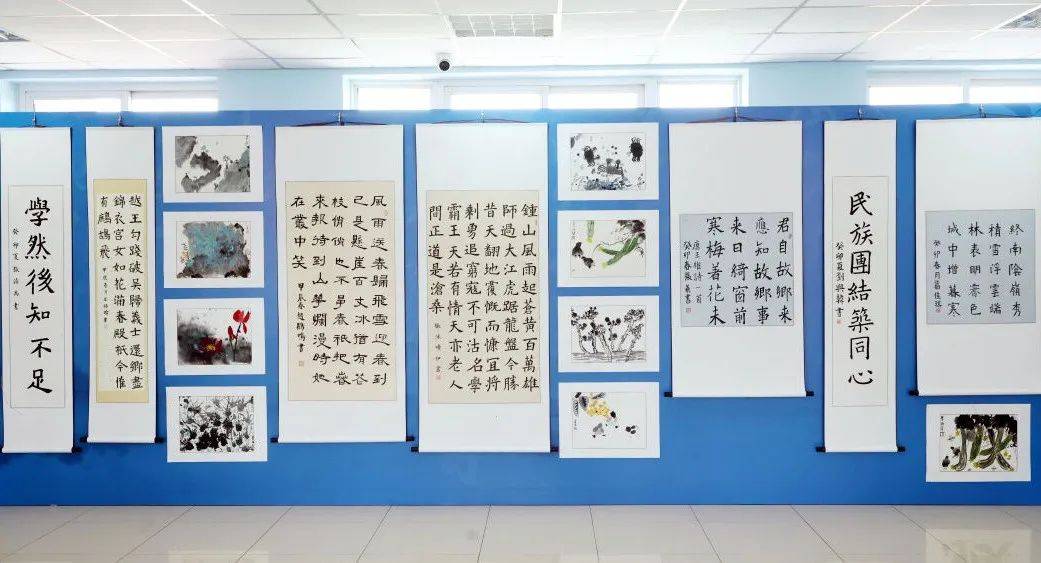 學然後知不足
癸卯夏
越王勾踐破吳歸義士還鄉盡
錦衣宮女如花滿春殿祇今惟
有鷓鴣飛
風雨送春歸飛雪迎春到
已是懸崖百丈冰猶有花
枝俏俏也不爭春祇把春
來報待到山花爛漫時她
在叢中笑
甲辰春趙鵬鳴書
鍾山風雨起蒼黃百萬雄
師過大江虎踞龍盤今勝
昔天翻地覆慨而慷宜將
剩勇追窮寇不可沽名學
霸王天若有情天亦老人
間正道是滄桑
君自故鄉來
應知故鄉事
來日綺窗前
寒梅著花未
唐王維詩一首
癸卯春張義書
民族團結築同心
癸卯夏劉興韓書
終南陰嶺秀
積雪浮雲端
林表明霽色
城中增暮寒
癸卯春月